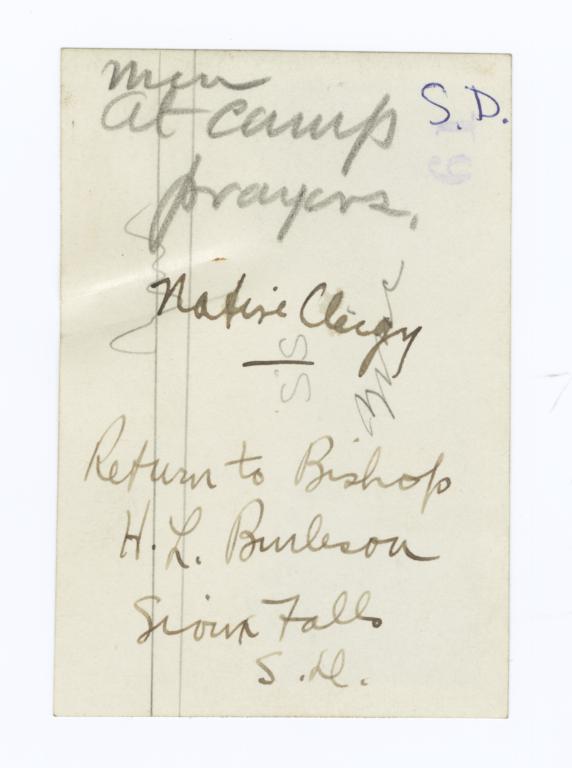 men
at camp
prayers.
S.D.
Native Clergy
Return to Bishop
H. L. Burleson
Sioux Falls
S. D.